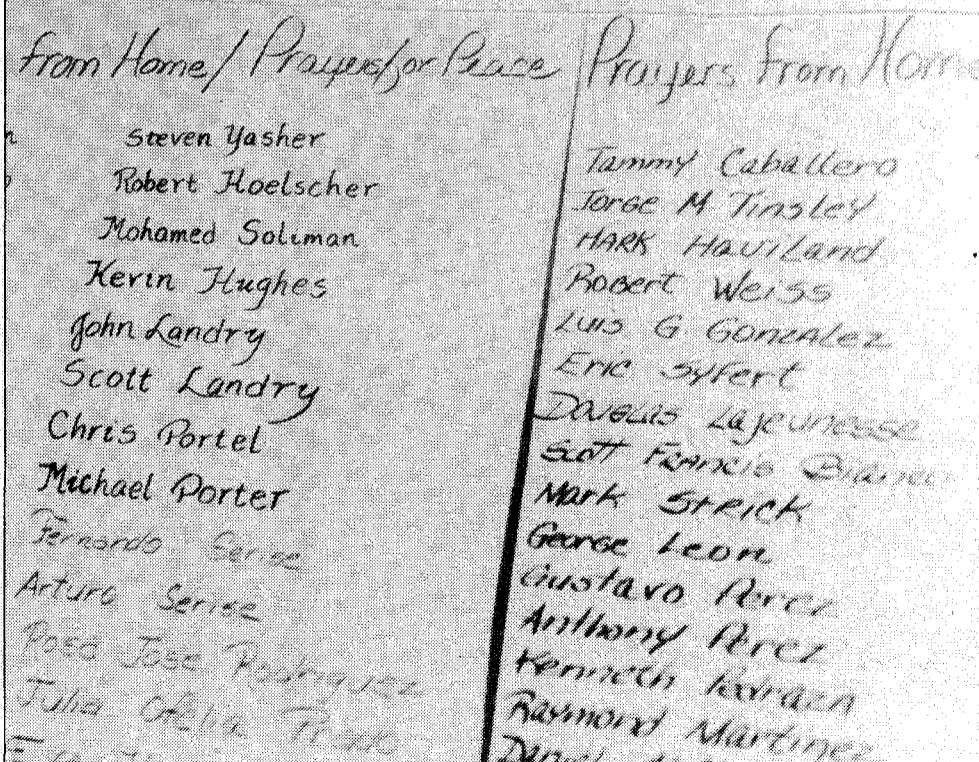 from Home / Prayers for Peace
Steven Yasher
Robert Hoelscher
Mohamed Soliman
Kevin Hughes
John Landry
Scott Landry
Chris Portel
Michael Porter
Fernando Serise
Arturo Serise
Rosa Jose Rodriguez
Julia Ofelia
Prayers from Home
Tammy Caballero
Jorge M Tinsley
MARK Haviland
Robert Weiss
Luis G Gonzalez
Eric Syfert
Douglas Lajeunesse
Scott Francis
Mark Strick
George Leon
Gustavo Perez
Anthony Perez
Kenneth Pedraza
Raymond Martinez